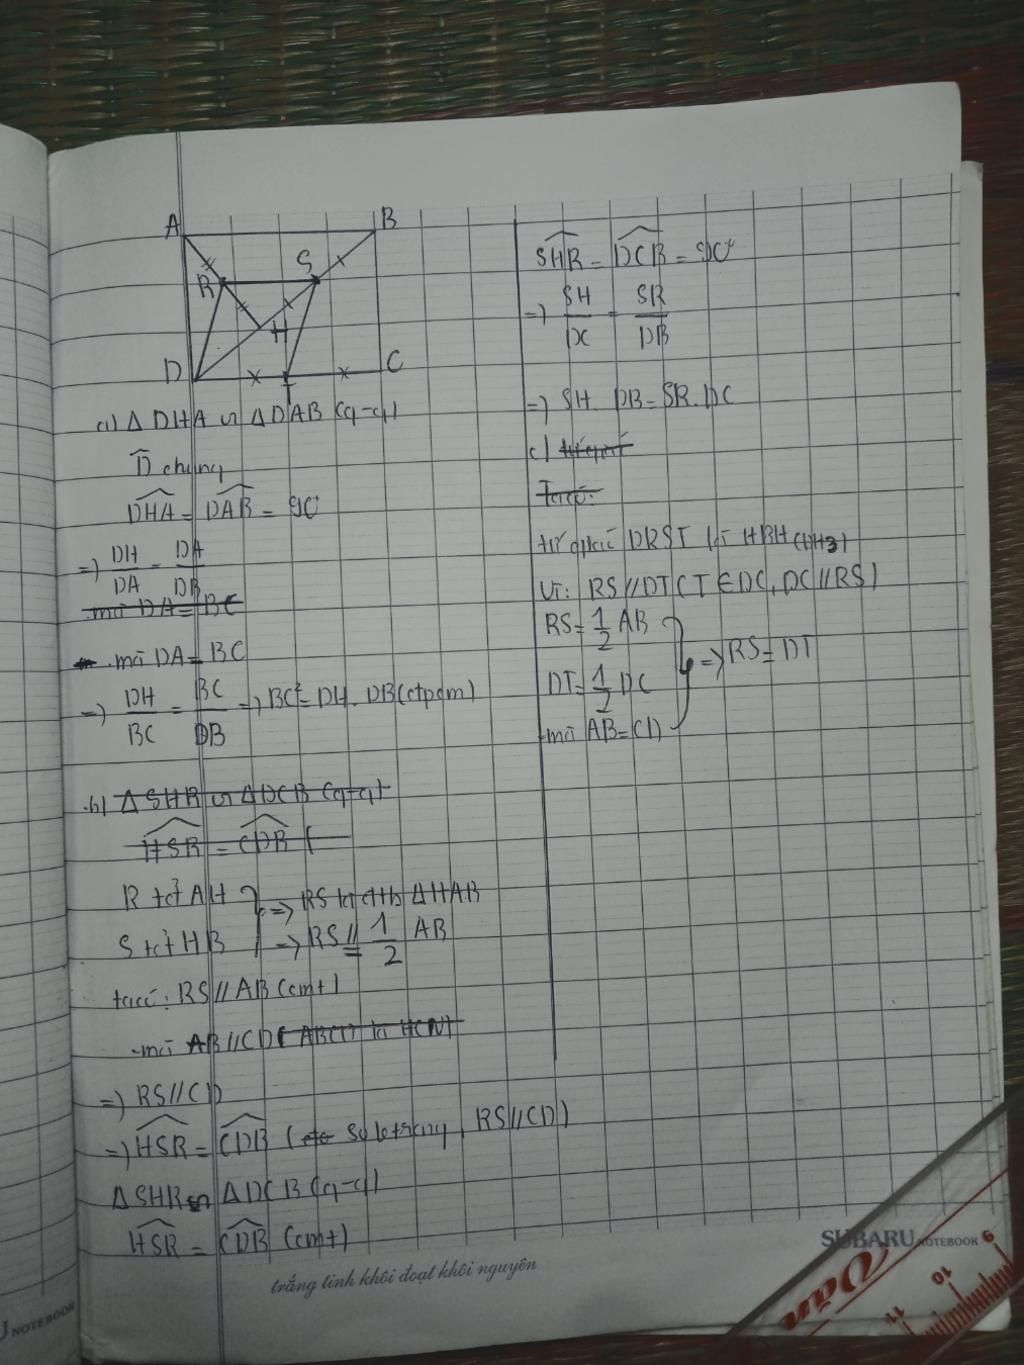 A
B
R
S
H
D
T
C
a) Δ DHA ∽ Δ DAB (g-g)
D̂ chung
DHA = DAB = 90°
=> DH/DA = DA/DB
mà DA = BC
mà DA = BC
=> DH/BC = BC/DB => BC² = DH . DB (đpcm)
b) Δ SHR ∽ Δ DCB (g-g)
HSR = CDB (
R tđ AH
=> RS là đtb Δ HAB
S tđ HB
=> RS // = 1/2 AB
ta có: RS // AB (cmt)
mà AB // CD ( ABCD là HCN)
=> RS // CD
=> HSR = CDB ( so le trong, RS // CD)
Δ SHR ∽ Δ DCB (g-g)
HSR = CDB (cmt)
SHR = DCB = 90°
=> SH/DC = SR/DB
=> SH . DB = SR . DC
c)
Ta có:
tứ giác DRST là HBH (DH3)
Vì: RS // DT ( T ∈ DC, DC // RS)
RS = 1/2 AB
=> RS = DT
DT = 1/2 DC
mà AB = CD
SUBARU NOTEBOOK
trắng tinh khôi đoạt khôi nguyên
NOTEBOOK
9
10
11